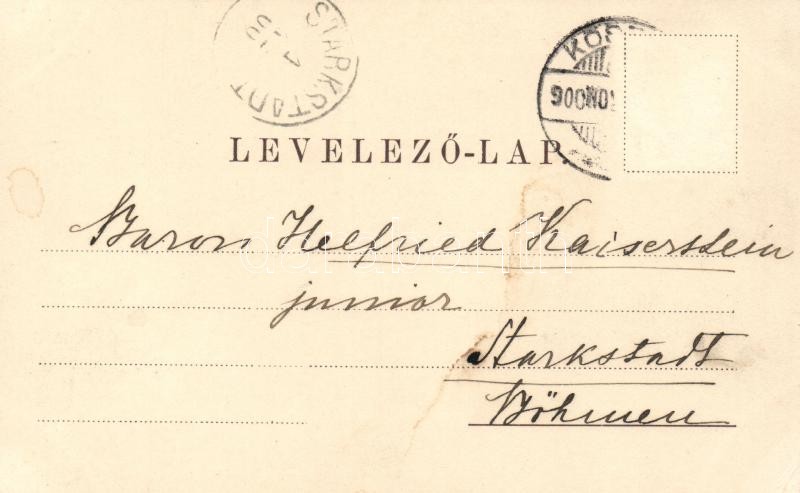 STARKSTADT
900 NOV
LEVELEZŐ-LAP.
Baron Helfried Kaiserstein
junior
Starkstadt
Böhmen